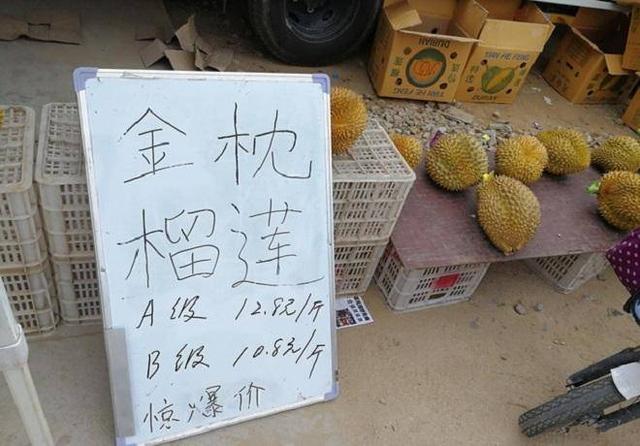 金枕
榴莲
A级 12.8元/斤
B级 10.8元/斤
惊爆价
DURIAN
YAN HE FENG
DURIAN